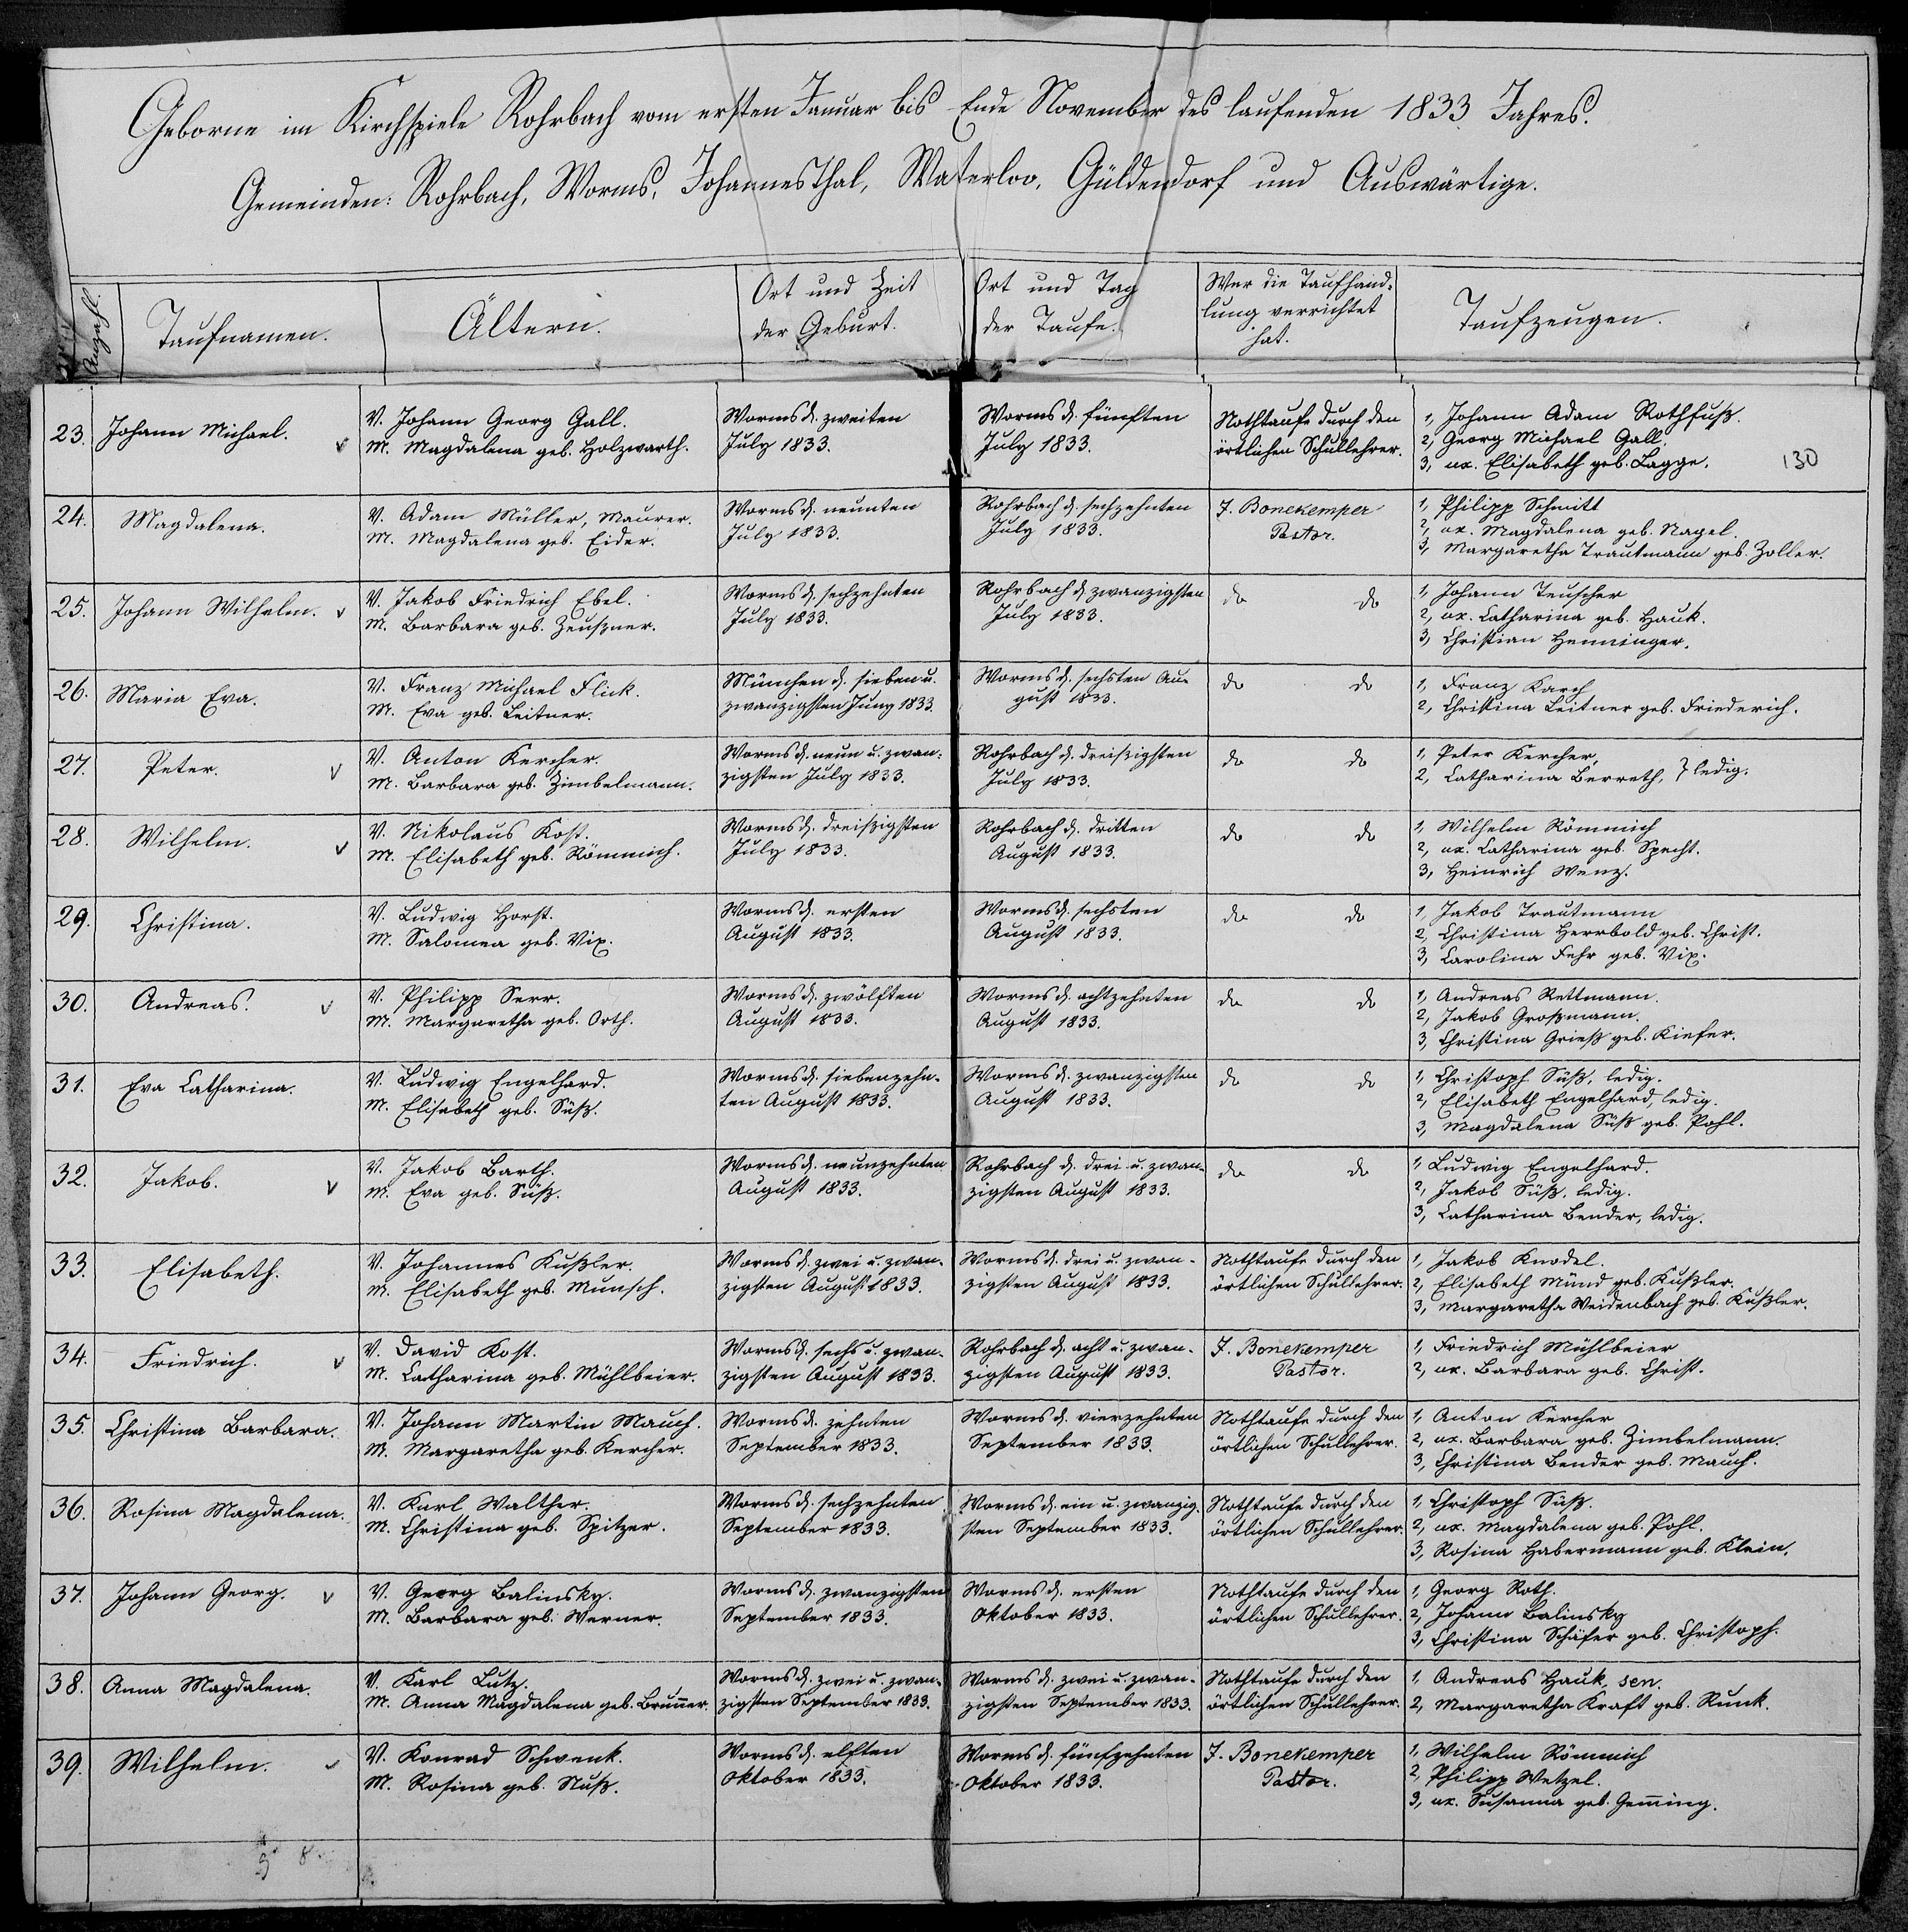 Geborne im Kirchspiele Rohrbach vom ersten Januar bis Ende November des laufenden 1833 Jahres.
Gemeinden: Rohrbach, Worms, Johannesthal, Waterloo, Güldendorf und Auswärtige.
Anzahl.
Taufnamen.
Ältern.
Ort und Zeit
der Geburt.
Ort und Tag
der Taufe.
Wer die Taufhand-
lung verrichtet
hat.
Taufzeugen.
23. Johann Michael. v
V. Johann Georg Gall.
M. Magdalena geb. Holzwarth.
Worms d. zweiten
July 1833.
Worms d. fünften
July 1833.
Nothtaufe durch den
örtlichen Schullehrer.
1, Johann Adam Rothfuß.
2, Georg Michael Gall.
3, ux. Elisabeth geb. Lagge.
130
24. Magdalena.
V. Adam Müller, Maurer.
M. Magdalena geb. Eider.
Worms d. neunten
July 1833.
Rohrbach d. sechzehnten
July 1833.
J. Bonekemper
Pastor.
1, Philipp Schmitt
2, ux. Magdalena geb. Nagel.
3, Margaretha Trautmann geb. Zoller.
25. Johann Wilhelm. v
V. Jakob Friedrich Ebel.
M. Barbara geb. Zeußner.
Worms d. sechzehnten
July 1833.
Rohrbach d. zwanzigsten
July 1833.
do do
1, Johann Teuscher
2, ux. Catharina geb. Hauk.
3, Christian Henninger.
26. Maria Eva.
V. Franz Michael Flick.
M. Eva geb. Leitner.
München d. sieben u.
zwanzigsten Juny 1833.
Worms d. sechsten Au-
gust 1833.
do do
1, Franz Karch
2, Christina Leitner geb. Friederich.
27. Peter. v
V. Anton Kercher.
M. Barbara geb. Zimbelmann.
Worms d. neun u. zwan-
zigsten July 1833.
Rohrbach d. dreißigsten
July 1833.
do do
1, Peter Kercher,
2, Catharina Berreth, } ledig.
28. Wilhelm. v
V. Nikolaus Kost.
M. Elisabeth geb. Römmich.
Worms d. dreißigsten
July 1833.
Rohrbach d. dritten
August 1833.
do do
1, Wilhelm Römmich
2, ux. Catharina geb. Specht.
3, Heinrich Wenz.
29. Christina.
V. Ludwig Horst.
M. Salomea geb. Vix.
Worms d. ersten
August 1833.
Worms d. sechsten
August 1833.
do do
1, Jakob Trautmann
2, Christina Herrbold geb. Christ.
3, Carolina Fehr geb. Vix.
30. Andreas. v
V. Philipp Serr.
M. Margaretha geb. Orth.
Worms d. zwölften
August 1833.
Worms d. achtzehnten
August 1833.
do do
1, Andreas Rettmann.
2, Jakob Großmann.
3, Christina Grieß geb. Kiefer.
31. Eva Catharina.
V. Ludwig Engelhard.
M. Elisabeth geb. Süß.
Worms d. siebenzehn-
ten August 1833.
Worms d. zwanzigsten
August 1833.
do do
1, Christoph Süß, ledig.
2, Elisabeth Engelhard, ledig.
3, Magdalena Süß geb. Pohl.
32. Jakob. v
V. Jakob Barth.
M. Eva geb. Süß.
Worms d. neunzehnten
August 1833.
Rohrbach d. drei u. zwan-
zigsten August 1833.
do do
1, Ludwig Engelhard.
2, Jakob Süß, ledig.
3, Catharina Bender, ledig.
33. Elisabeth.
V. Johannes Kußler.
M. Elisabeth geb. Munsch.
Worms d. zwei u. zwan-
zigsten August 1833.
Worms d. drei u. zwan-
zigsten August 1833.
Nothtaufe durch den
örtlichen Schullehrer.
1, Jakob Knodel.
2, Elisabeth Münd geb. Kußler.
3, Margaretha Weidenbach geb. Kußler.
34. Friedrich. v
V. David Kost.
M. Catharina geb. Mühlbeier.
Worms d. sechs u. zwan-
zigsten August 1833.
Rohrbach d. acht u. zwan-
zigsten August 1833.
J. Bonekemper
Pastor.
1, Friedrich Mühlbeier
2, ux. Barbara geb. Christ.
35. Christina Barbara.
V. Johann Martin Mauch.
M. Margaretha geb. Kercher.
Worms d. zehnten
September 1833.
Worms d. vierzehnten
September 1833.
Nothtaufe durch den
örtlichen Schullehrer.
1, Anton Kercher
2, ux. Barbara geb. Zimbelmann.
3, Christina Bender geb. Mauch.
36. Rosina Magdalena.
V. Karl Walther.
M. Christina geb. Spitzer.
Worms d. sechzehnten
September 1833.
Worms d. ein u. zwanzig-
sten September 1833.
Nothtaufe durch den
örtlichen Schullehrer.
1, Christoph Süß.
2, ux. Magdalena geb. Pohl.
3, Rosina Habermann geb. Klein.
37. Johann Georg. v
V. Georg Balinsky.
M. Barbara geb. Werner.
Worms d. zwanzigsten
September 1833.
Worms d. ersten
Oktober 1833.
Nothtaufe durch den
örtlichen Schullehrer.
1, Georg Roth.
2, Johann Balinsky
3, Christina Schäfer geb. Christoph.
38. Anna Magdalena.
V. Karl Lutz.
M. Anna Magdalena geb. Bruñer.
Worms d. zwei u. zwan-
zigsten September 1833.
Worms d. zwei u. zwan-
zigsten September 1833.
Nothtaufe durch den
örtlichen Schullehrer.
1, Andreas Hauk, sen.
2, Margaretha Kraft geb. Runk.
39. Wilhelm. v
V. Konrad Schwenk.
M. Rosina geb. Nuß.
Worms d. elften
Oktober 1833.
Worms d. fünfzehnten
Oktober 1833.
J. Bonekemper
Pastor.
1, Wilhelm Römmich
2, Philipp Wetzel.
3, ux. Susanna geb. Gem̄ing.